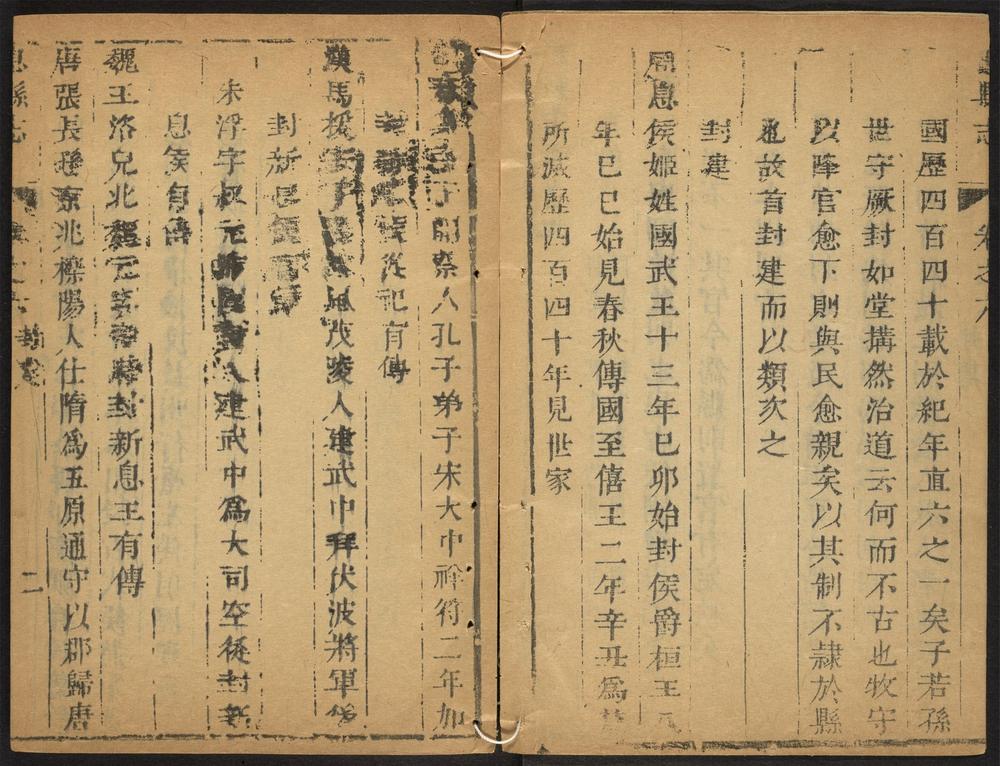 縣志 卷之六
國歷四百四十載於紀年直六之一矣子若孫
世守厥封如堂搆然治道云何而不古也牧守
以降官愈下則與民愈親矣以其制不隷於縣
也故首封建而以類次之
封建
周息侯姬姓國武王十三年巳卯始封侯爵桓王
年巳巳始見春秋傳國至僖王二年辛丑為
所滅歷四百四十年見世家
開祭人孔子弟子宋大中祥符二年加
從祀有傳
漢馬援字 茂陵人建武中拜伏波將軍
封新息侯
朱浮字叔元沛 人建武中為大司空後封新
息侯有傳
魏王洛兒北魏元 封新息王有傳
唐張長孫京兆櫟陽人仕隋為五原通守以郡歸唐
息縣志 二